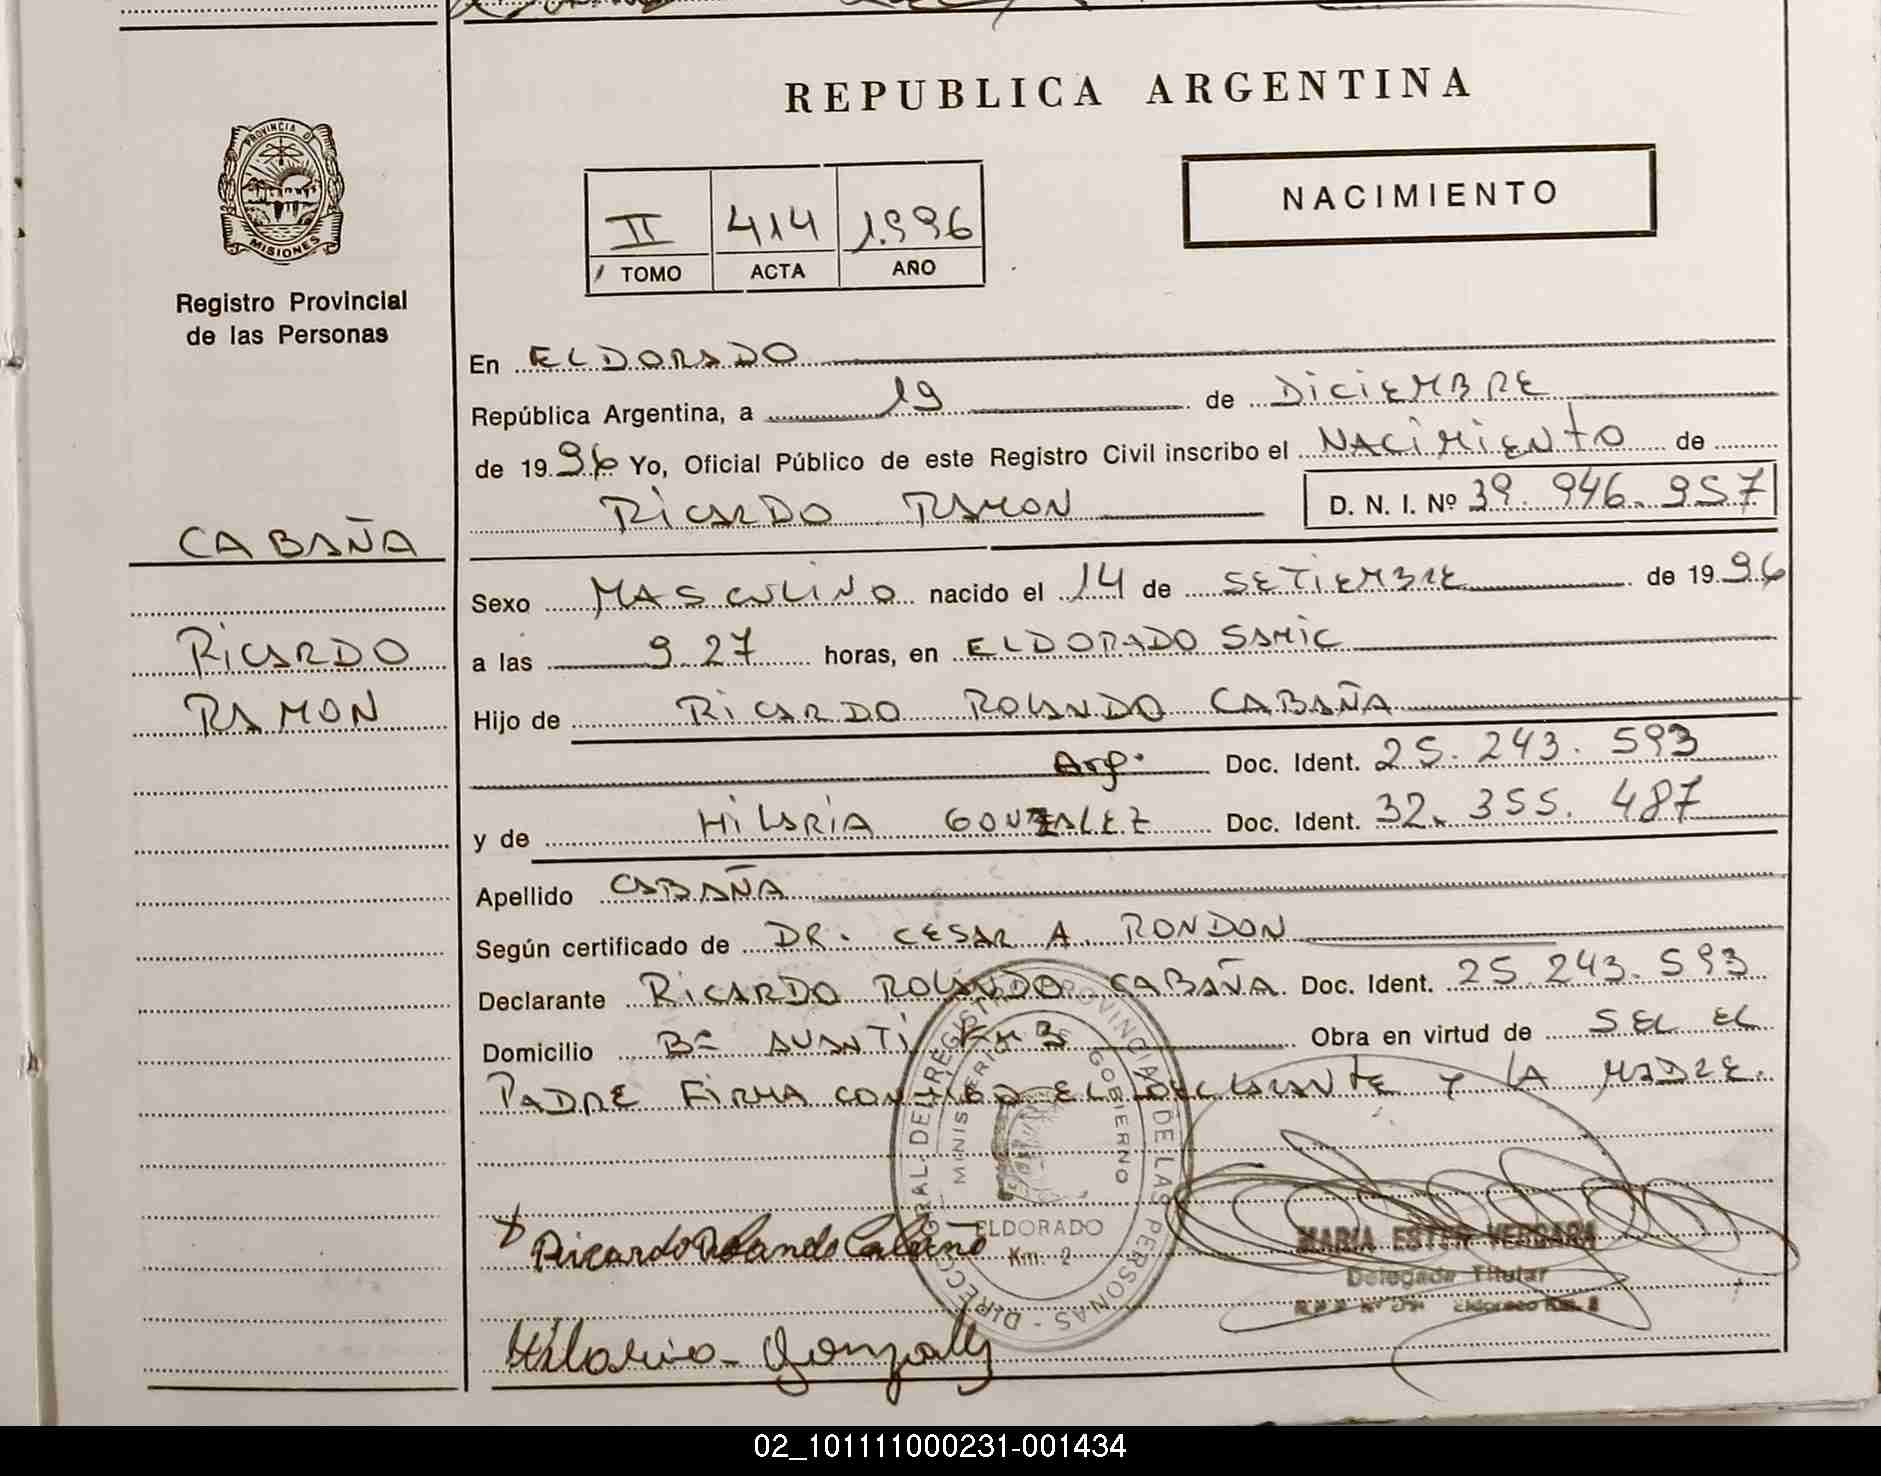 REPUBLICA ARGENTINA
PROVINCIA DE
MISIONES
Registro Provincial
de las Personas
NACIMIENTO
II 414 1.996
TOMO ACTA AÑO
En ELDORADO
República Argentina, a 19 de DICIEMBRE
de 1996 Yo, Oficial Público de este Registro Civil inscribo el NACIMIENTO de
RICARDO RAMON D. N. I. Nº 39.946.957
CABAÑA
RICARDO
RAMON
Sexo MASCULINO nacido el 14 de SETIEMBRE de 1996
a las 9 27 horas, en ELDORADO SAMIC
Hijo de RICARDO ROLANDO CABAÑA
Arg. Doc. Ident. 25.243.593
y de HILARIA GONZALEZ Doc. Ident. 32.355.487
Apellido CABAÑA
Según certificado de DR. CESAR A. RONDON
Declarante RICARDO ROLANDO CABAÑA Doc. Ident. 25.243.593
Domicilio Bº AVANTI Km 3 Obra en virtud de SER EL
PADRE FIRMA CONMIGO EL DECLARANTE Y LA MADRE.
DIRECCION GRAL. DEL REGISTRO PROVINCIAL DE LAS PERSONAS
MINISTERIO DE GOBIERNO
ELDORADO
Km. 2
Ricardo Rolando Cabaña
MARIA ESTER VERGARA
Delegada Titular
Hilaria Gonzalez
02_101111000231-001434